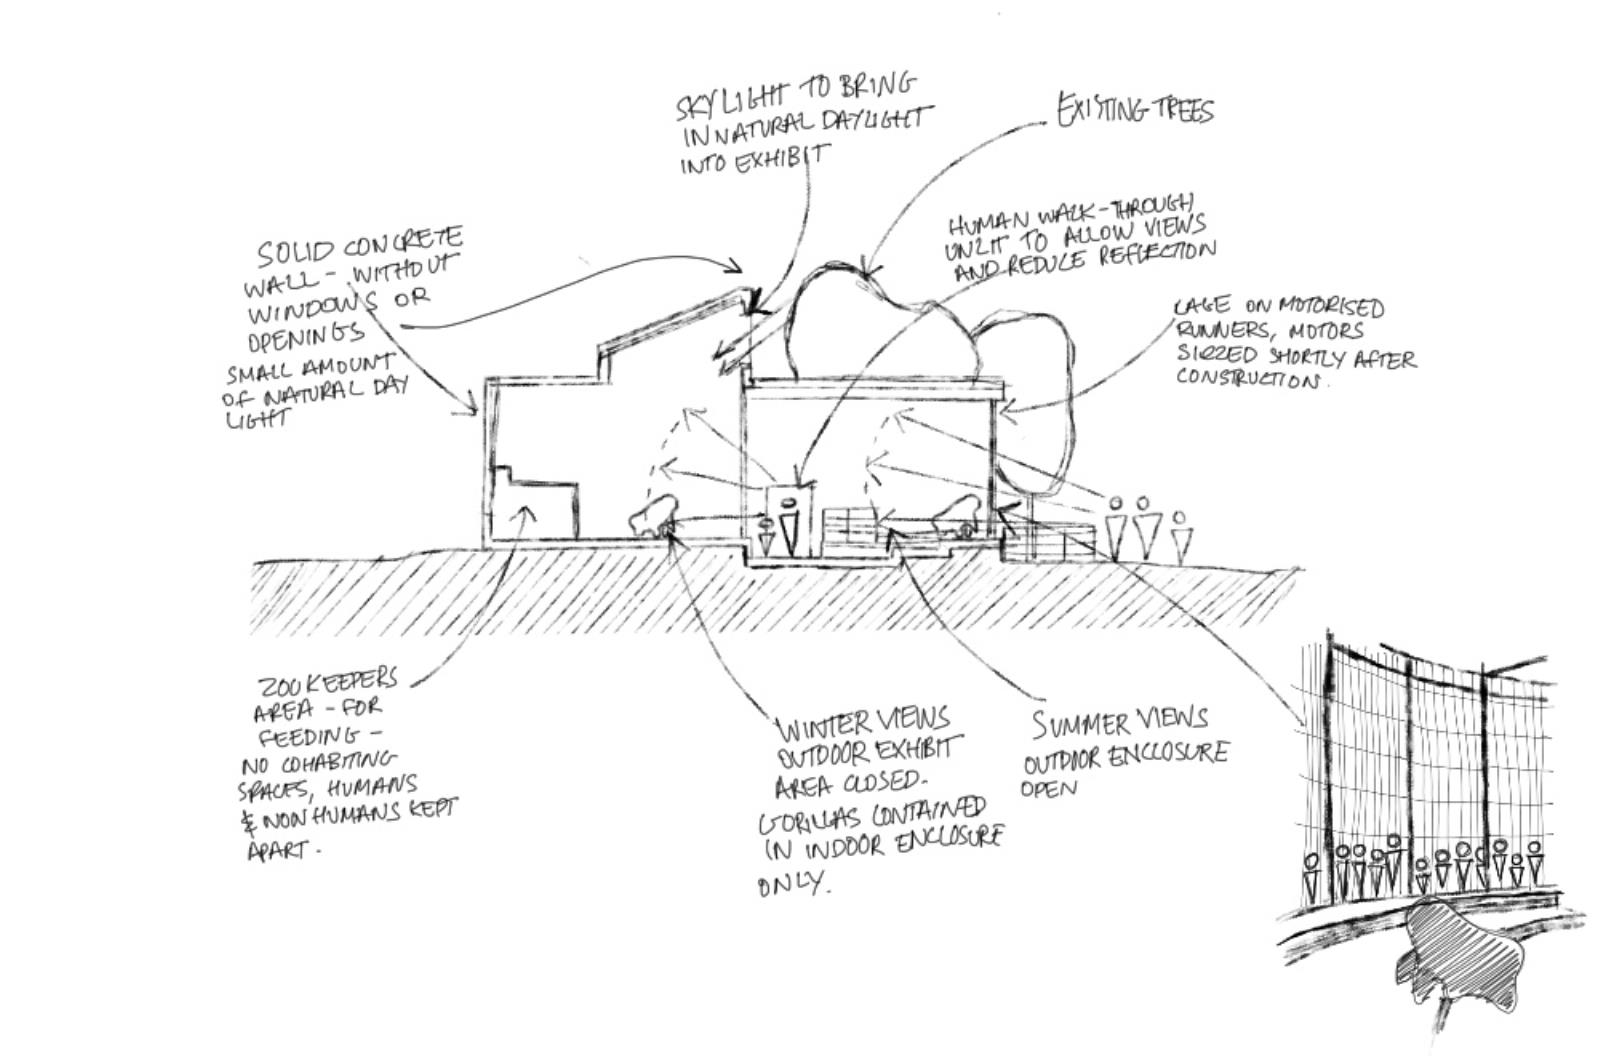 SKYLIGHT TO BRING
IN NATURAL DAYLIGHT
INTO EXHIBIT
EXISTING TREES
HUMAN WALK-THROUGH
UNLIT TO ALLOW VIEWS
AND REDUCE REFLECTION
SOLID CONCRETE
WALL - WITHOUT
WINDOWS OR
OPENINGS
SMALL AMOUNT
OF NATURAL DAY
LIGHT
CAGE ON MOTORISED
RUNNERS, MOTORS
SIEZED SHORTLY AFTER
CONSTRUCTION.
ZOOKEEPERS
AREA - FOR
FEEDING -
NO COHABITING
SPACES, HUMANS
& NON HUMANS KEPT
APART.
WINTER VIEWS
OUTDOOR EXHIBIT
AREA CLOSED.
GORILLAS CONTAINED
IN INDOOR ENCLOSURE
ONLY.
SUMMER VIEWS
OUTDOOR ENCLOSURE
OPEN